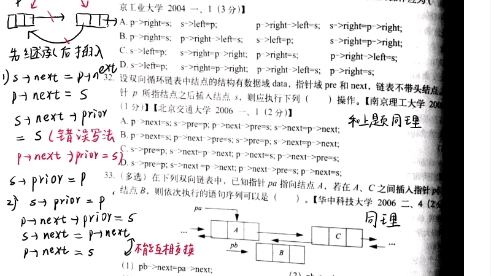 京工业大学 2004 一、1 (3 分)】
A. p->right=s;  s->left=p;  p->right->left=s;  s->right=p->right;
s->right=p->right;
先继承后插入
1) s→next = p→next
p→next = s
s→next→prior
= s (错误写法
p→next→prior = s)
s→prior = p
2) s→prior = p
p→next→prior = s
s→next = p→next
p→next = s
不能互相交换
设双向循环链表中结点的结构有数据域 data，指针域 pre 和 next，链表不带头结点
针 p 所指结点之后插入结点 s，则应执行下列 ( ) 操作。【南京理工大学 200
(1 分)】【北京交通大学 2006 一、1 (2 分)】
和上题同理
A. p->next=s; s->pre=p; p->next->pre=s; s->next=p->next;
B. p->next=s; p->next->pre=s; s->pre=p; s->next=p->next;
C. s->pre=p; s->next=p->next; p->next=s; p->next->pre=s;
D. s->pre=p; s->next=p->next; p->next->pre=s; p->next=s;
33. (多选) 在下列双向链表中，已知指针 pa 指向结点 A，若在 A、C 之间插入指针 p
结点 B，则依次执行的语句序列可以是 ( )。【华中科技大学 2006 二、4 (2
同理
pa
A
C
...
pb
B
(1) pb->next=pa->next;